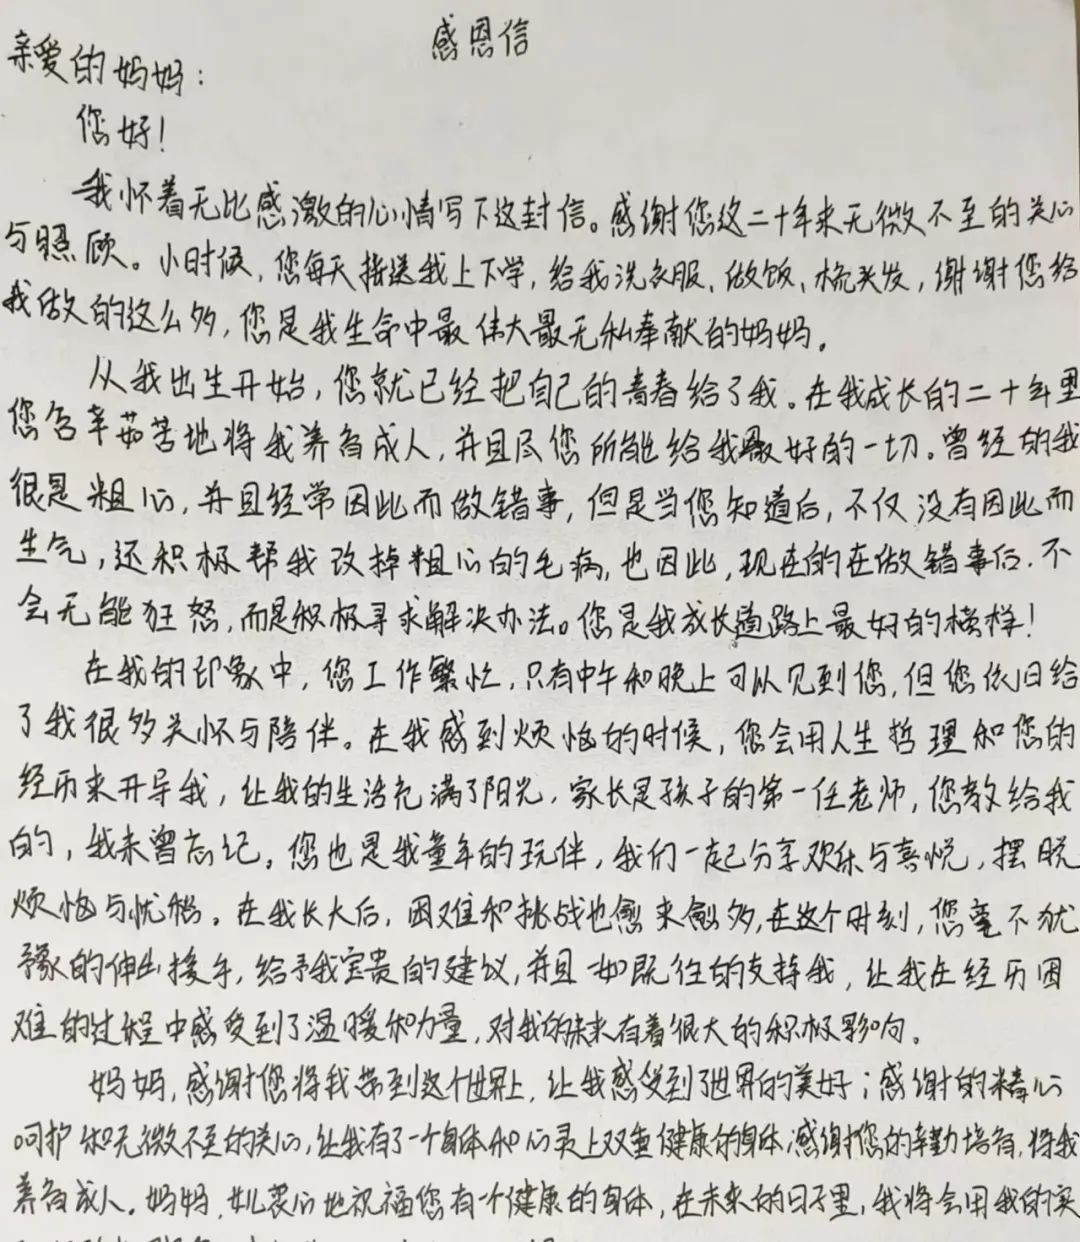 感恩信
亲爱的妈妈：
您好！
我怀着无比感激的心情写下这封信。感谢您这二十年来无微不至的关心
与照顾。小时候，您每天接送我上下学，给我洗衣服、做饭、梳头发，谢谢您给
我做的这么多，您是我生命中最伟大最无私奉献的妈妈。
从我出生开始，您就已经把自己的青春给了我。在我成长的二十年里
您含辛茹苦地将我养育成人，并且尽您所能给我最好的一切。曾经的我
很是粗心，并且经常因此而做错事，但是当您知道后，不仅没有因此而
生气，还积极帮我改掉粗心的毛病，也因此，现在的在做错事后，不
会无能狂怒，而是积极寻求解决办法。您是我成长道路上最好的榜样！
在我的印象中，您工作繁忙，只有中午和晚上可以见到您，但您依旧给
了我很多关怀与陪伴。在我感到烦恼的时候，您会用人生哲理和您的
经历来开导我，让我的生活充满了阳光，家长是孩子的第一任老师，您教给我
的，我未曾忘记。您也是我童年的玩伴，我们一起分享欢乐与喜悦，摆脱
烦恼与忧愁。在我长大后，困难和挑战也愈来愈多，在这个时刻，您毫不犹
豫的伸出援手，给予我宝贵的建议，并且一如既往的支持我，让我在经历困
难的过程中感受到了温暖和力量，对我的未来有着很大的积极影响。
妈妈，感谢您将我带到这个世界上，让我感受到了世界的美好；感谢的精心
呵护和无微不至的关心，让我有了一个身体和心灵上双重健康的身体，感谢您的辛勤培育，将我
养育成人。妈妈，女儿衷心地祝福您有一个健康的身体，在未来的日子里，我将会用我的实